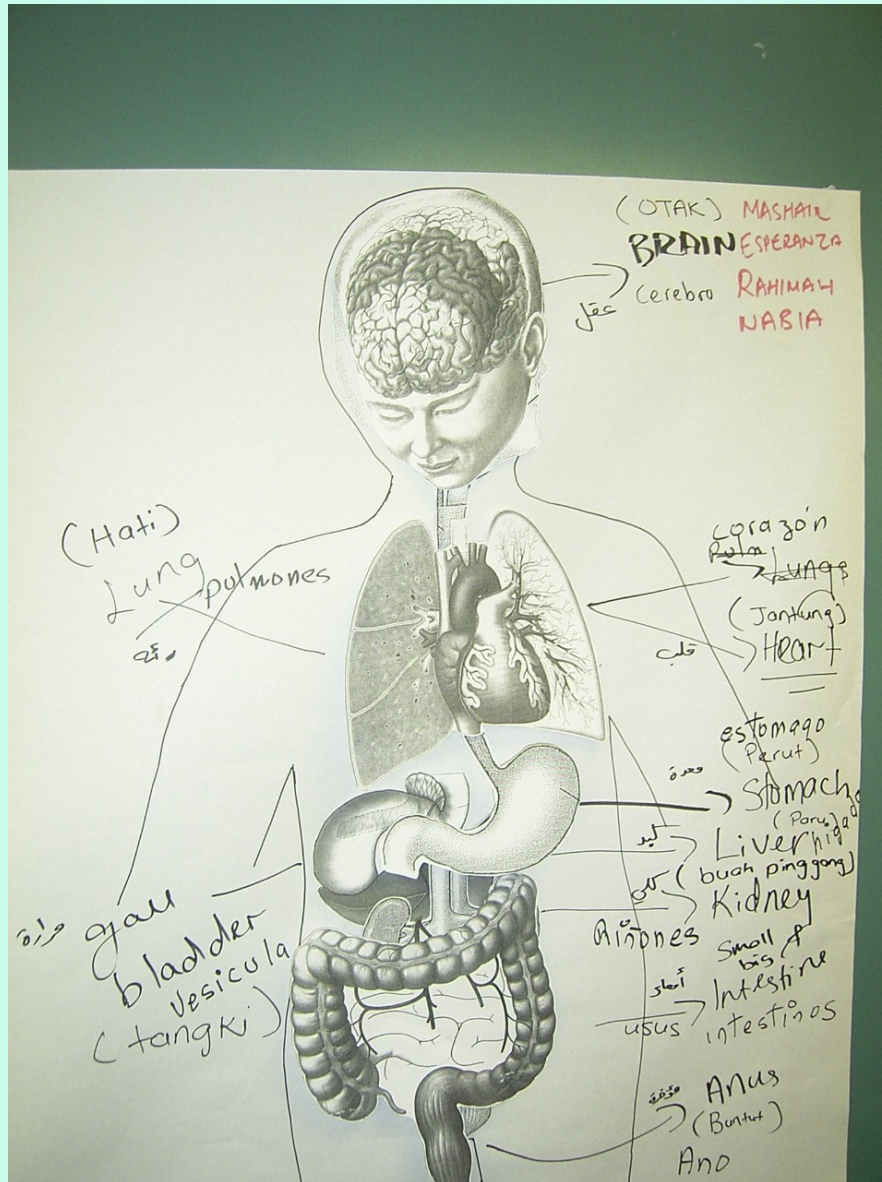 (OTAK) MASHAIR
BRAIN ESPERANZA
عقل Cerebro RAHIMAH
NABIA
(Hati)
Lung
pulmones
رئة
corazón
Lungs
(Jantung)
قلب Heart
estomago
(Perut)
معدة
Stomach
(Paru
كبد Liver higado
(buah pinggang)
كلى Kidney
Riñones
Small &
big
أمعاء Intestine
usus intestinos
gall
مرارة
bladder
vesicula
(tangki)
Anus
(Buntut)
Ano